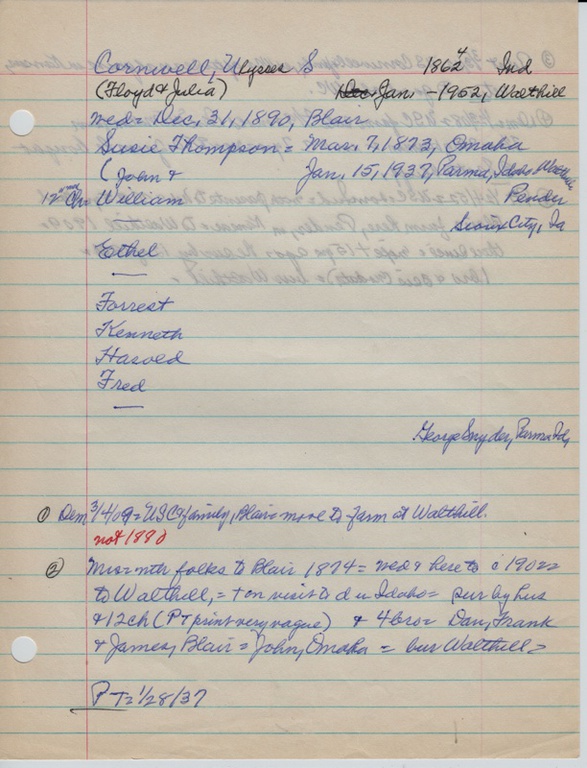 Cornwell, Ulysses S 1862⁴ Ind
(Floyd & Julia) Jan. -1952, Walthill
wed= Dec, 31, 1890, Blair
Susie Thompson = Mar. 7, 1873, Omaha
(John & Jan. 15, 1937, Parma, Idaho Walthill
12 Ch= William Pender
Sioux City, Ia
Ethel
Forrest
Kenneth
Harold
Fred
George Snyder, Parma Id,
① Dem 3/4/09= USC & family, Blair= move to farm at Walthill.
not 1880
② Mrs= mth folks to Blair 1874= wed & here to c 1902=
to Walthill, = + on visit to d in Idaho= sur by hus
& 12 ch (PT print very vague) & 4 bro= Dan, Frank
& James, Blair = John, Omaha = bur Walthill=
PT= 1/28/37